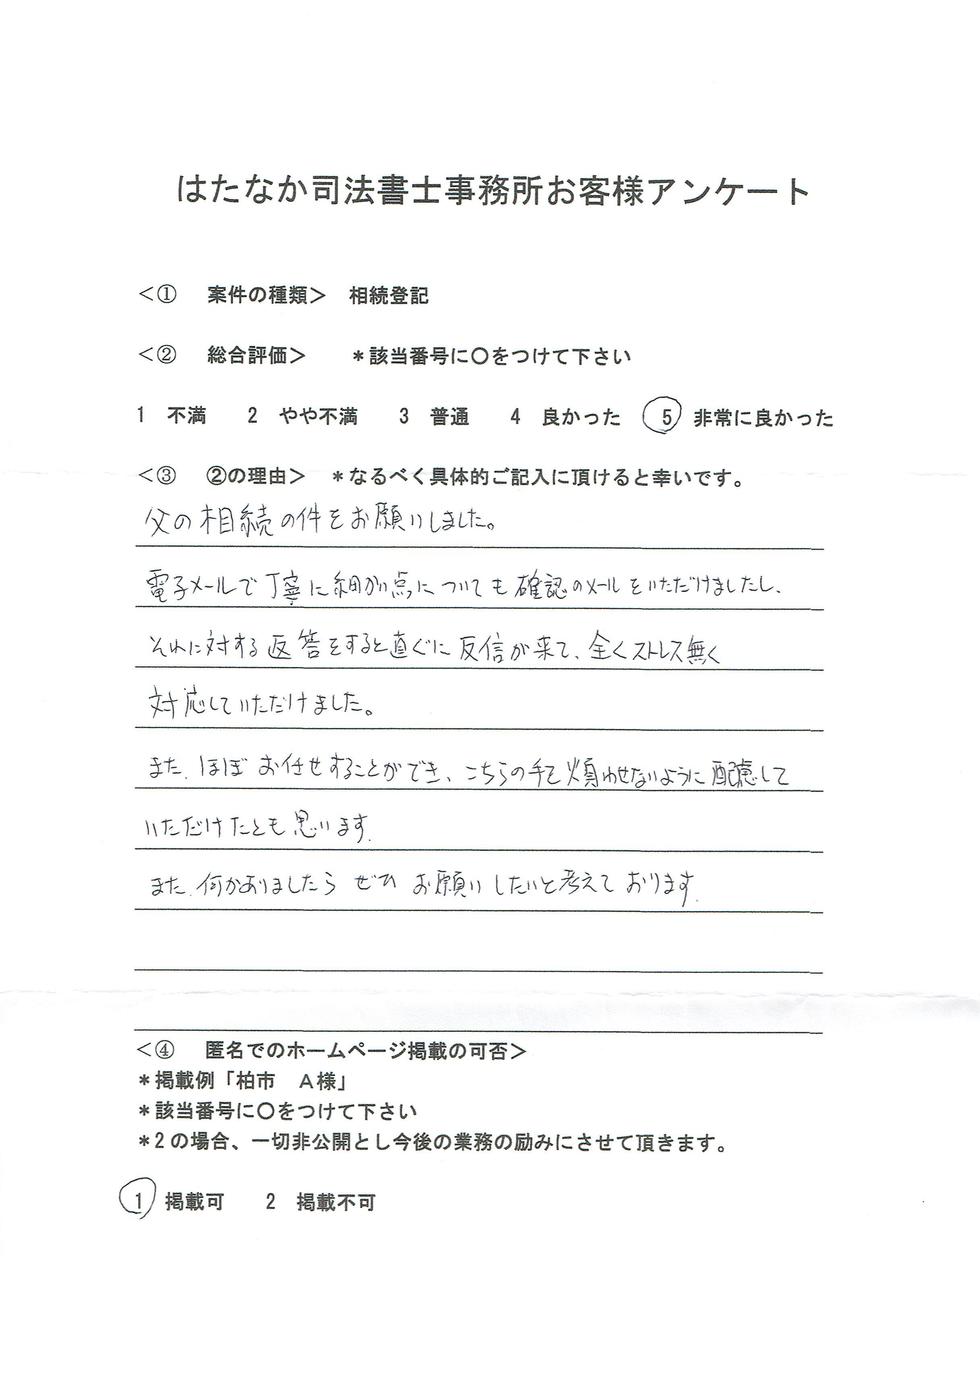 はたなか司法書士事務所お客様アンケート
＜① 案件の種類＞ 相続登記
＜② 総合評価＞ ＊該当番号に〇をつけて下さい
1 不満 2 やや不満 3 普通 4 良かった 5 非常に良かった
＜③ ②の理由＞ ＊なるべく具体的ご記入に頂けると幸いです。
父の相続の件をお願いしました。
電子メールで丁寧に細かい点についても確認のメールをいただけましたし、
それに対する返答をすると直ぐに反信が来て、全くストレス無く
対応していただけました。
また、ほぼお任せすることができ、こちらの手を煩わせないように配慮して
いただけたとも思います。
また、何かありましたらぜひお願いしたいと考えております。
＜④ 匿名でのホームページ掲載の可否＞
＊掲載例「柏市 Ａ様」
＊該当番号に〇をつけて下さい
＊2の場合、一切非公開とし今後の業務の励みにさせて頂きます。
1 掲載可 2 掲載不可